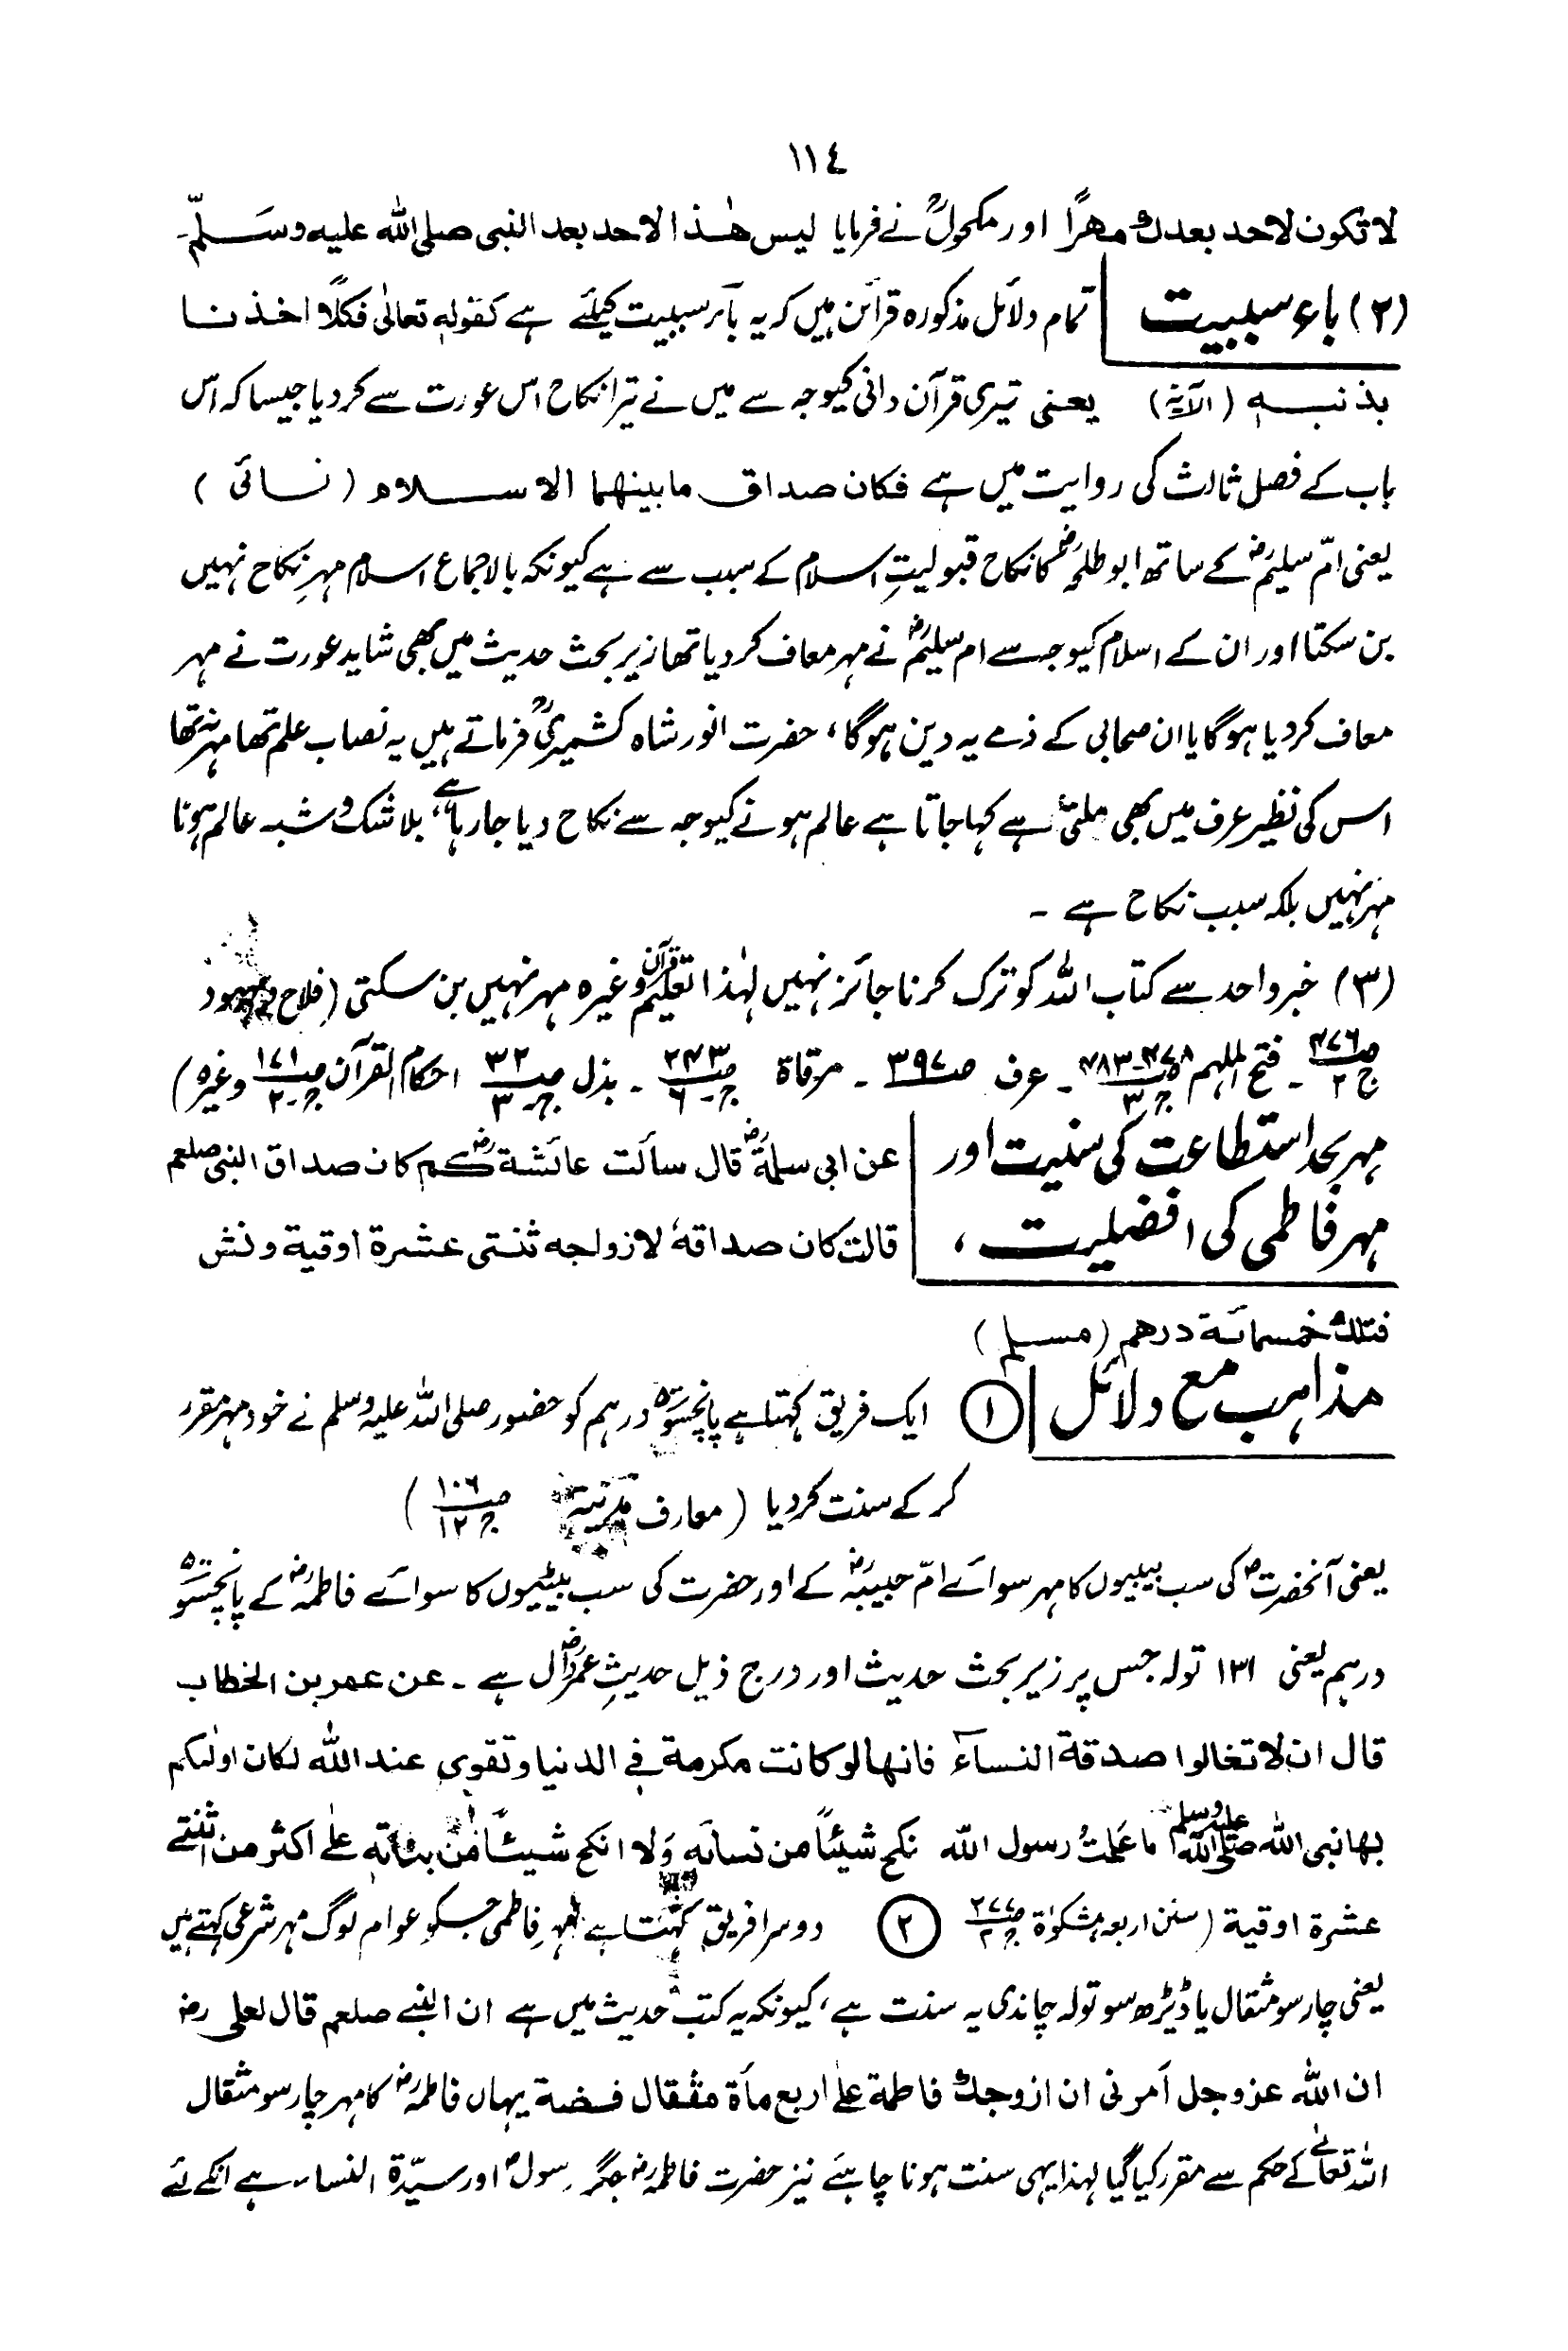 ١١٤
لا تكون لاحد بعدك مهرًا اور مکحولؒ نے فرمایا لیس هٰذا لاحد بعد النبی صلی الله علیه وسلّم۔
(۲) باء سببیت تمام دلائل مذکورہ قرائن ہیں کہ یہ باء سببیت کیلئے ہے کقوله تعالیٰ فکلًا اخذنا
بذنبه (الآیة) یعنی تیری قرآن دانی کیوجہ سے میں نے تیرا نکاح اس عورت سے کر دیا جیسا کہ اس
باب کے فصل ثالث کی روایت میں ہے فکان صداق مابینهما الاسلام (نسائی)
یعنی امّ سلیمؓ کے ساتھ ابو طلحہؓ کا نکاح قبولیتِ اسلام کے سبب سے ہے کیونکہ بالاجماع اسلام مہرِ نکاح نہیں
بن سکتا اور ان کے اسلام کیوجہ سے ام سلیمؓ نے مہر معاف کر دیا تھا زیر بحث حدیث میں بھی شاید عورت نے مہر
معاف کر دیا ہوگا یا ان صحابی کے ذمے یہ دین ہوگا، حضرت انور شاہ کشمیریؒ فرماتے ہیں یہ نصاب علم تھا مہر نہ تھا
اس کی نظیر عرف میں بھی ملتی ہے کہا جاتا ہے عالم ہونے کیوجہ سے نکاح دیا جا رہا ہے، بلا شک و شبہ عالم ہونا
مہر نہیں بلکہ سبب نکاح ہے ۔
(۳) خبر واحد سے کتاب اللہ کو ترک کرنا جائز نہیں لہٰذا تعلیم قرآن وغیرہ مہر نہیں بن سکتی (فلاح و بہبود
صـ۴۷۶ ج۲ ۔ فتح الملہم صـ۴۷۸-۴۸۳ ج۳ ۔ عرف صـ۳۹۷ ۔ مرقاة صـ۲۴۳ ج۶ ۔ بذل صـ۳۲ ج۳ احکام القرآن صـ۱۷۱ ج۲ وغیرہ)
مہر بحد استطاعت کی سنیت اور عن ابی سلمةؓ قال سألت عائشةؓ کم کان صداق النبی صلعم
مہر فاطمی کی افضلیت، قالت کان صداقهٗ لازواجه ثنتی عشرة اوقیة ونش
فتلك خمسمائة درهم (مسلم)
مذاہب مع دلائل ① ایک فریق کہتا ہے پانچسو درہم کو حضور صلی اللہ علیہ وسلم نے خود مہر مقرر
کر کے سنت کر دیا (معارف مدنیہ صـ۱۰۶ ج۱۲)
یعنی آنحضرتؐ کی سب بیبیوں کا مہر سوائے امّ حبیبہؓ کے اور حضرت کی سب بیٹیوں کا سوائے فاطمہؓ کے پانچسو
درہم یعنی ۱۳۱ تولہ جس پر زیر بحث حدیث اور درج ذیل حدیثِ عمرؓ دال ہے ۔ عن عمر بن الخطاب
قال ان لا تغالوا صدقة النسآء فانها لو کانت مکرمة فی الدنیا و تقوی عند الله لکان اولٰکم
بها نبی الله صلی الله علیه وسلم ما علمتُ رسول الله نکح شیئًا من نسائه وَلا انکح شیئًا من بناته علی اکثر من اثنتے
عشرة اوقیة (سنن اربعہ، مشکوٰة صـ۲۷۷ ج۲ ② دوسرا فریق کہتا ہے مہرِ فاطمی جسکو عوام لوگ مہر شرعی کہتے ہیں
یعنی چار سو مثقال یا ڈیڑھ سو تولہ چاندی یہ سنت ہے، کیونکہ یہ کتب حدیث میں ہے ان النبی صلعم قال لعلی رضؓ
ان الله عزوجل أمرنی ان ازوجك فاطمة علی اربع مأة مثقال فضة یہاں فاطمہؓ کا مہر چار سو مثقال
اللہ تعالیٰ کے حکم سے مقرر کیا گیا لہذا یہی سنت ہونا چاہئے نیز حضرت فاطمہؓ جگر رسولؐ اور سیّدة النساء ہے انکے لئے